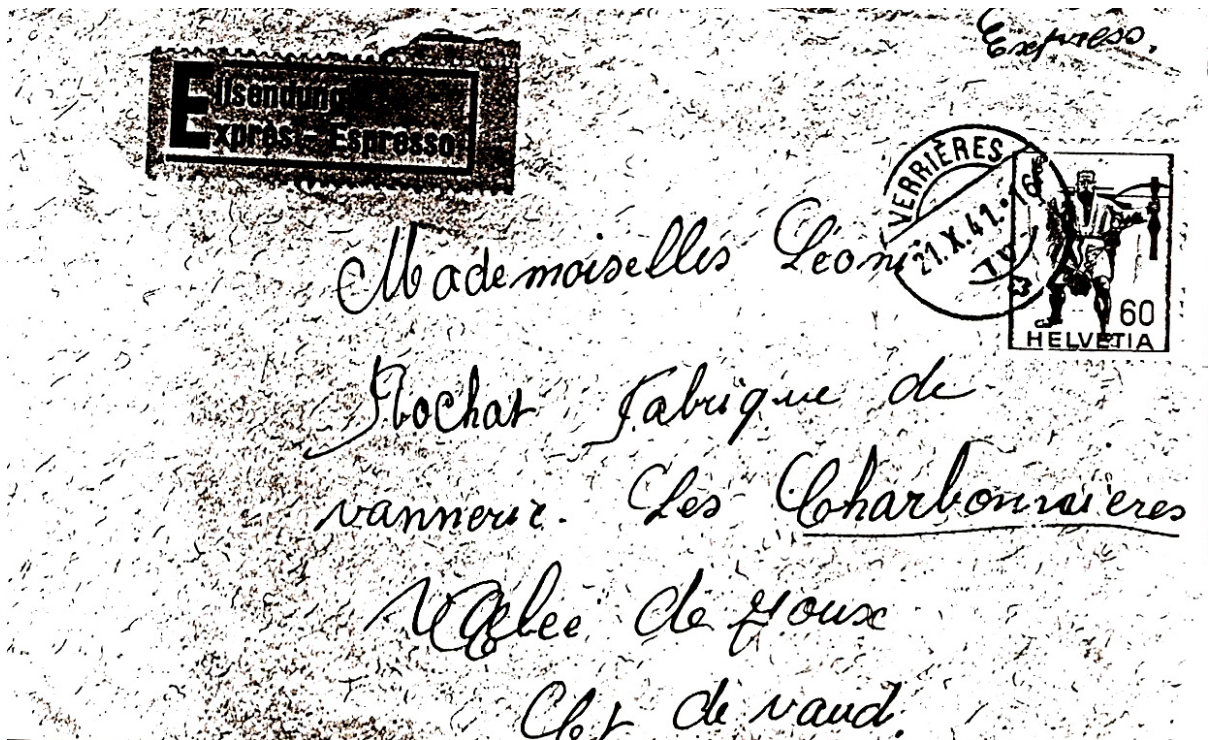 Express.
Eilsendung
Exprès - Espresso
VERRIÈRES
21.X.41.-16
60
HELVETIA
Mademoiselles Léonie
Rochat Fabrique de
vannerie. Les Charbonnieres
Vallée de Joux
Ct de vaud.